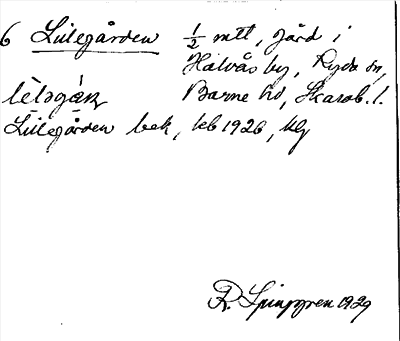 6 Lillegården 1/2 mtl, gård i
Halvås by, Ryda sn,
Barne hd, Skarab. l.
Lillegården bek, kb 1926, klg
R. Ljunggren 1929